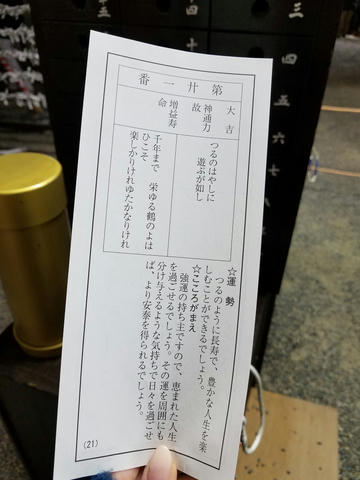 第廿一番
大吉
神通力
故
増益寿
命
つるのはやしに
遊ぶが如し
千年まで 栄ゆる鶴のよは
ひこそ
楽しかりけれゆたかなりけれ
☆運勢
つるのように長寿で、豊かな人生を楽
しむことができるでしょう。
☆こころがまえ
強運の持ち主ですので、恵まれた人生
を過ごせるでしょう。その運を周囲にも
分け与えるような気持ちで日々を過ごせ
ば、より安泰を得られるでしょう。
(21)
三
十
四
五
六
七
八